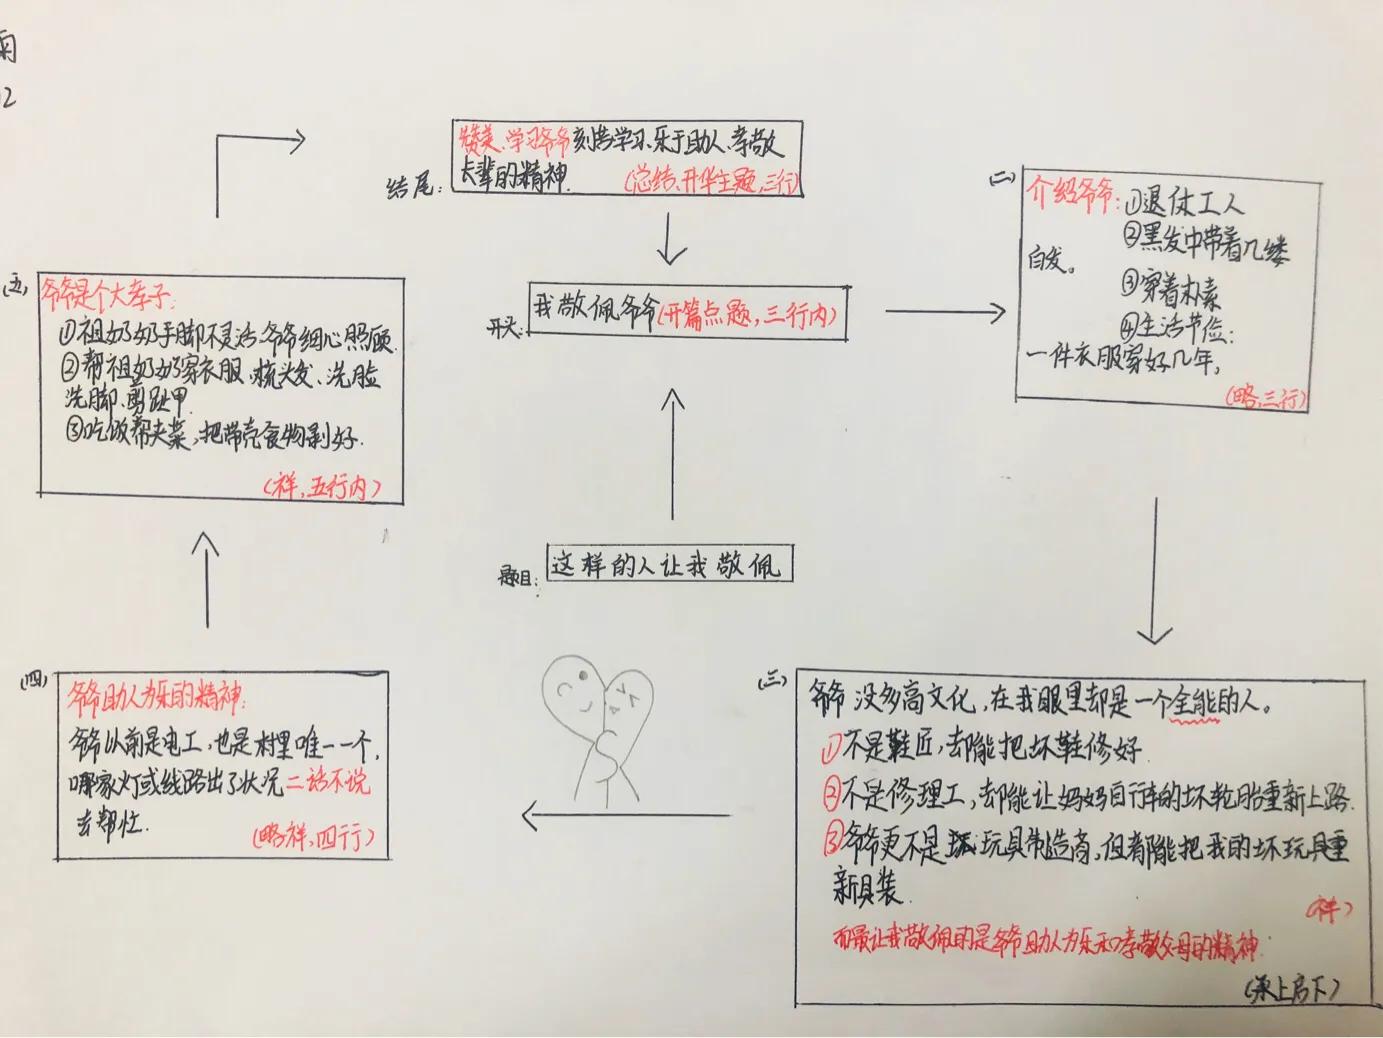 雨
02
结尾:
赞美、学习爷爷刻苦学习、乐于助人、孝敬
长辈的精神.
(总结、升华主题,三行)
开头:
我敬佩爷爷(开篇点题,三行内)
题目:
这样的人让我敬佩
(二)
介绍爷爷:①退休工人
②黑发中带着几缕
白发。
③穿着朴素
④生活节俭:
一件衣服穿好几年,
(略,三行)
(三)
爷爷没多高文化,在我眼里却是一个全能的人。
①不是鞋匠,却能把坏鞋修好.
②不是修理工,却能让妈妈自行车的坏轮胎重新上路.
③爷爷更不是玩具制造商,但都能把我的坏玩具重
新具装.
(祥)
而最让我敬佩的是爷爷助人为乐和孝敬父母的精神.
(承上启下)
(四)
爷爷助人为乐的精神:
爷爷以前是电工,也是村里唯一一个,
哪家灯或线路出了状况二话不说
去帮忙.
(略祥,四行)
(五)
爷爷是个大孝子:
①祖奶奶手脚不灵活.爷爷细心照顾.
②帮祖奶奶穿衣服、梳头发、洗脸
洗脚.剪趾甲.
③吃饭帮夹菜,把带壳食物剥好.
(祥,五行内)